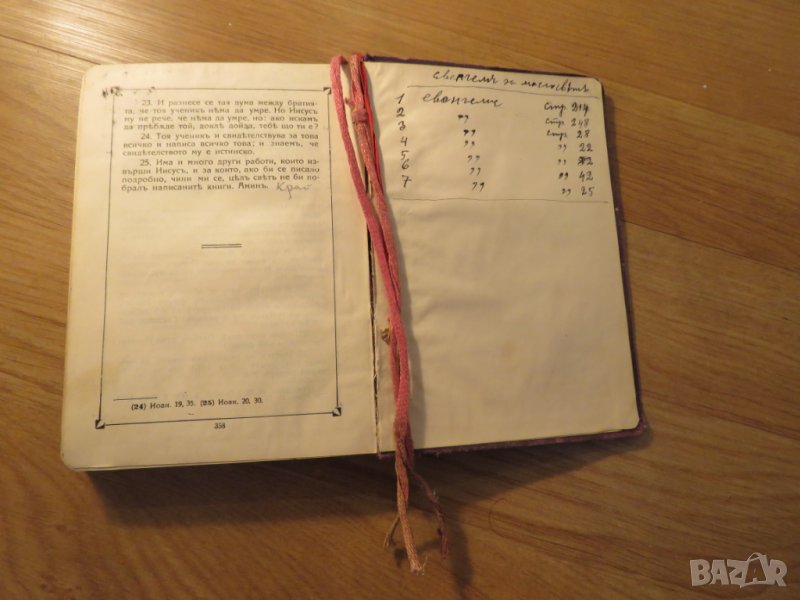 23. И разнесе се тая дума между братия-
та, че тоя ученикъ нѣма да умре. Но Иисусъ
му не рече, че нѣма да умре, но: ако искамъ
да прѣбѫде той, доклѣ дойда, тебѣ що ти е?
24. Тоя ученик и свидѣтелствува за това
всичко и написа всичко това; и знаемъ, че
свидѣтелството му е истинско.
25. Има и много други работи, които из-
върши Иисусъ, и за които, ако би се писало
подробно, чини ми се, цѣлъ свѣтъ не би по-
бралъ написаните книги. Аминъ. Край
(24) Иоан. 19, 35. (25) Иоан. 20, 30.
358
евангелия за
1 евангелие стр. 214
2 „ стр. 248
3 „ стр. 28
4 „ „ 22
5 „ „
6 „ „ 42
7 „ „ 25
BAZAR
bg